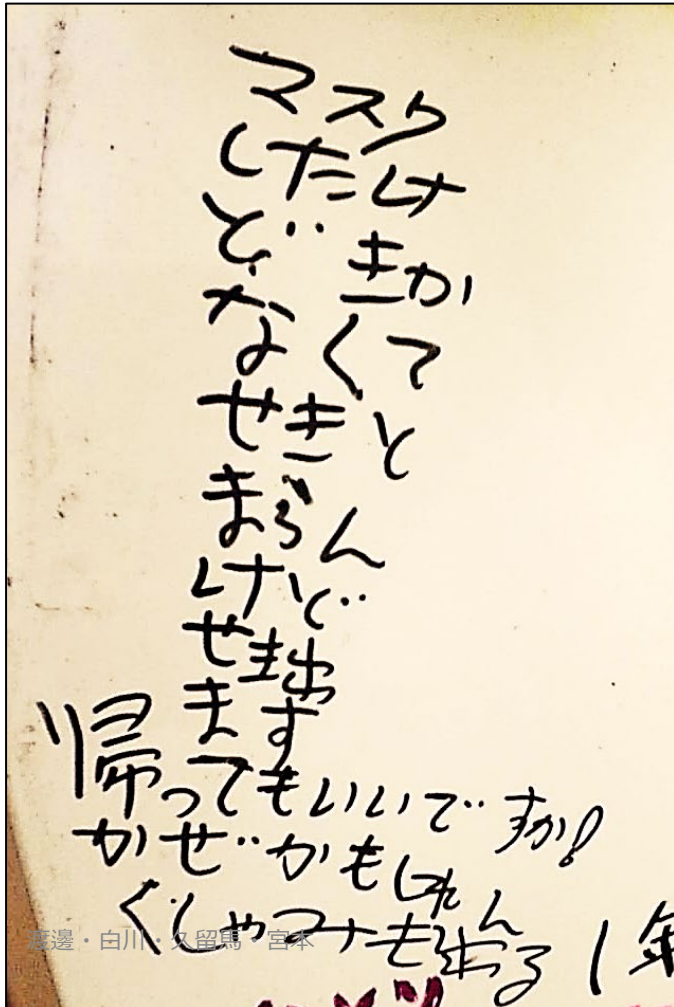 マスク
したけ
ど きか
なくて
せきと
まらん
けど
せき出
ます
帰ってもいいですか!
かぜかもしれん
くしゃみも出る 1年
渡邊・白川・久留馬・宮本